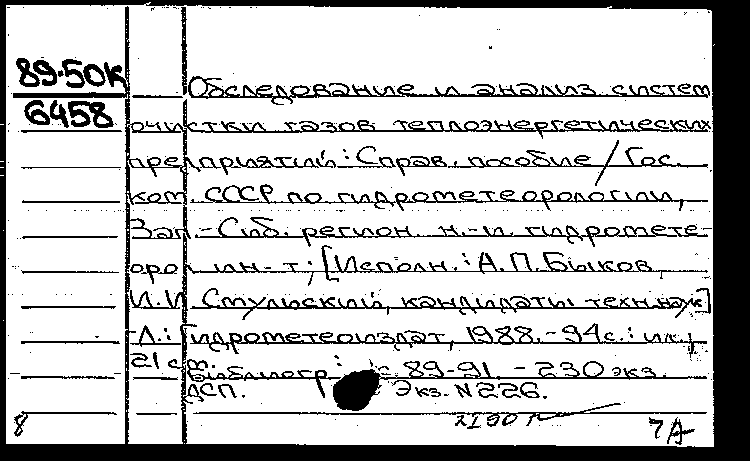 89-50К
6458
Обследование и анализ систем
очистки газов теплоэнергетических
предприятий: Справ. пособие / Гос.
ком. СССР по гидрометеорологии,
Зап.-Сиб. регион. н.-и. гидромете-
орол. ин-т; [Исполн.: А.П.Быков,
И.И. Стульский, кандидаты техн.наук]
-Л.: Гидрометеоиздат, 1988.-94с.: ил.;
21 см.
Библиогр.: с. 89-91. - 230 экз.
ДСП. Экз. N226.
8 7А